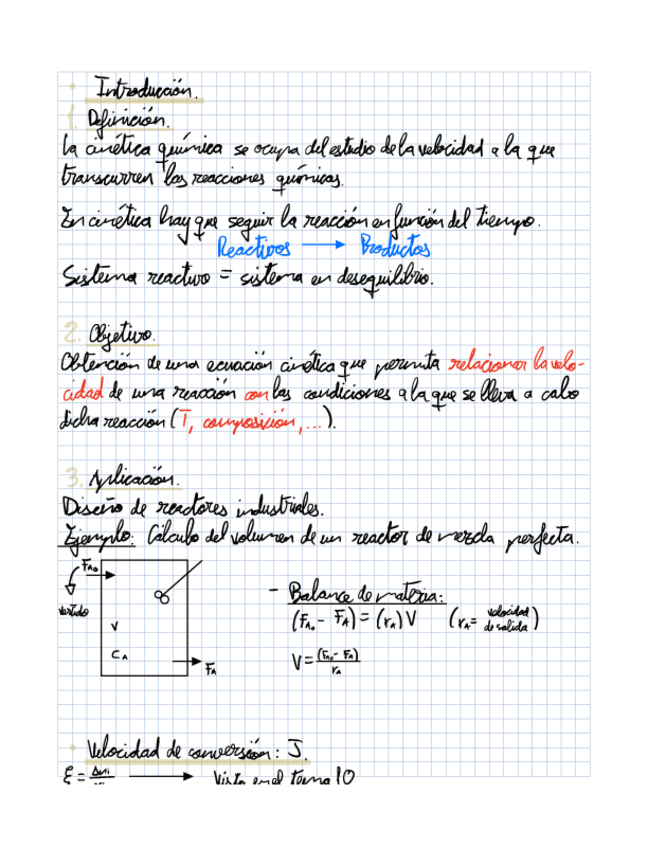 • Introducción.
1. Definición.
La cinética química se ocupa del estudio de la velocidad a la que
transcurren las reacciones químicas.
En cinética hay que seguir la reacción en función del tiempo.
Reactivos → Productos
Sistema reactivo = sistema en desequilibrio.
2. Objetivo.
Obtención de una ecuación cinética que permita relacionar la velo-
cidad de una reacción con las condiciones a la que se lleva a cabo
dicha reacción (T, composición,...).
3. Aplicación.
Diseño de reactores industriales.
Ejemplo: Cálculo del volumen de un reactor de mezcla perfecta.
F_A₀
vertido
V
C_A
F_A
- Balance de materia:
(F_A₀ - F_A) = (r_A) V (r_A = velocidad de salida)
V = (F_A₀ - F_A) / r_A
• Velocidad de conversión: J.
ξ = Δn_i → Visto en el tema 10